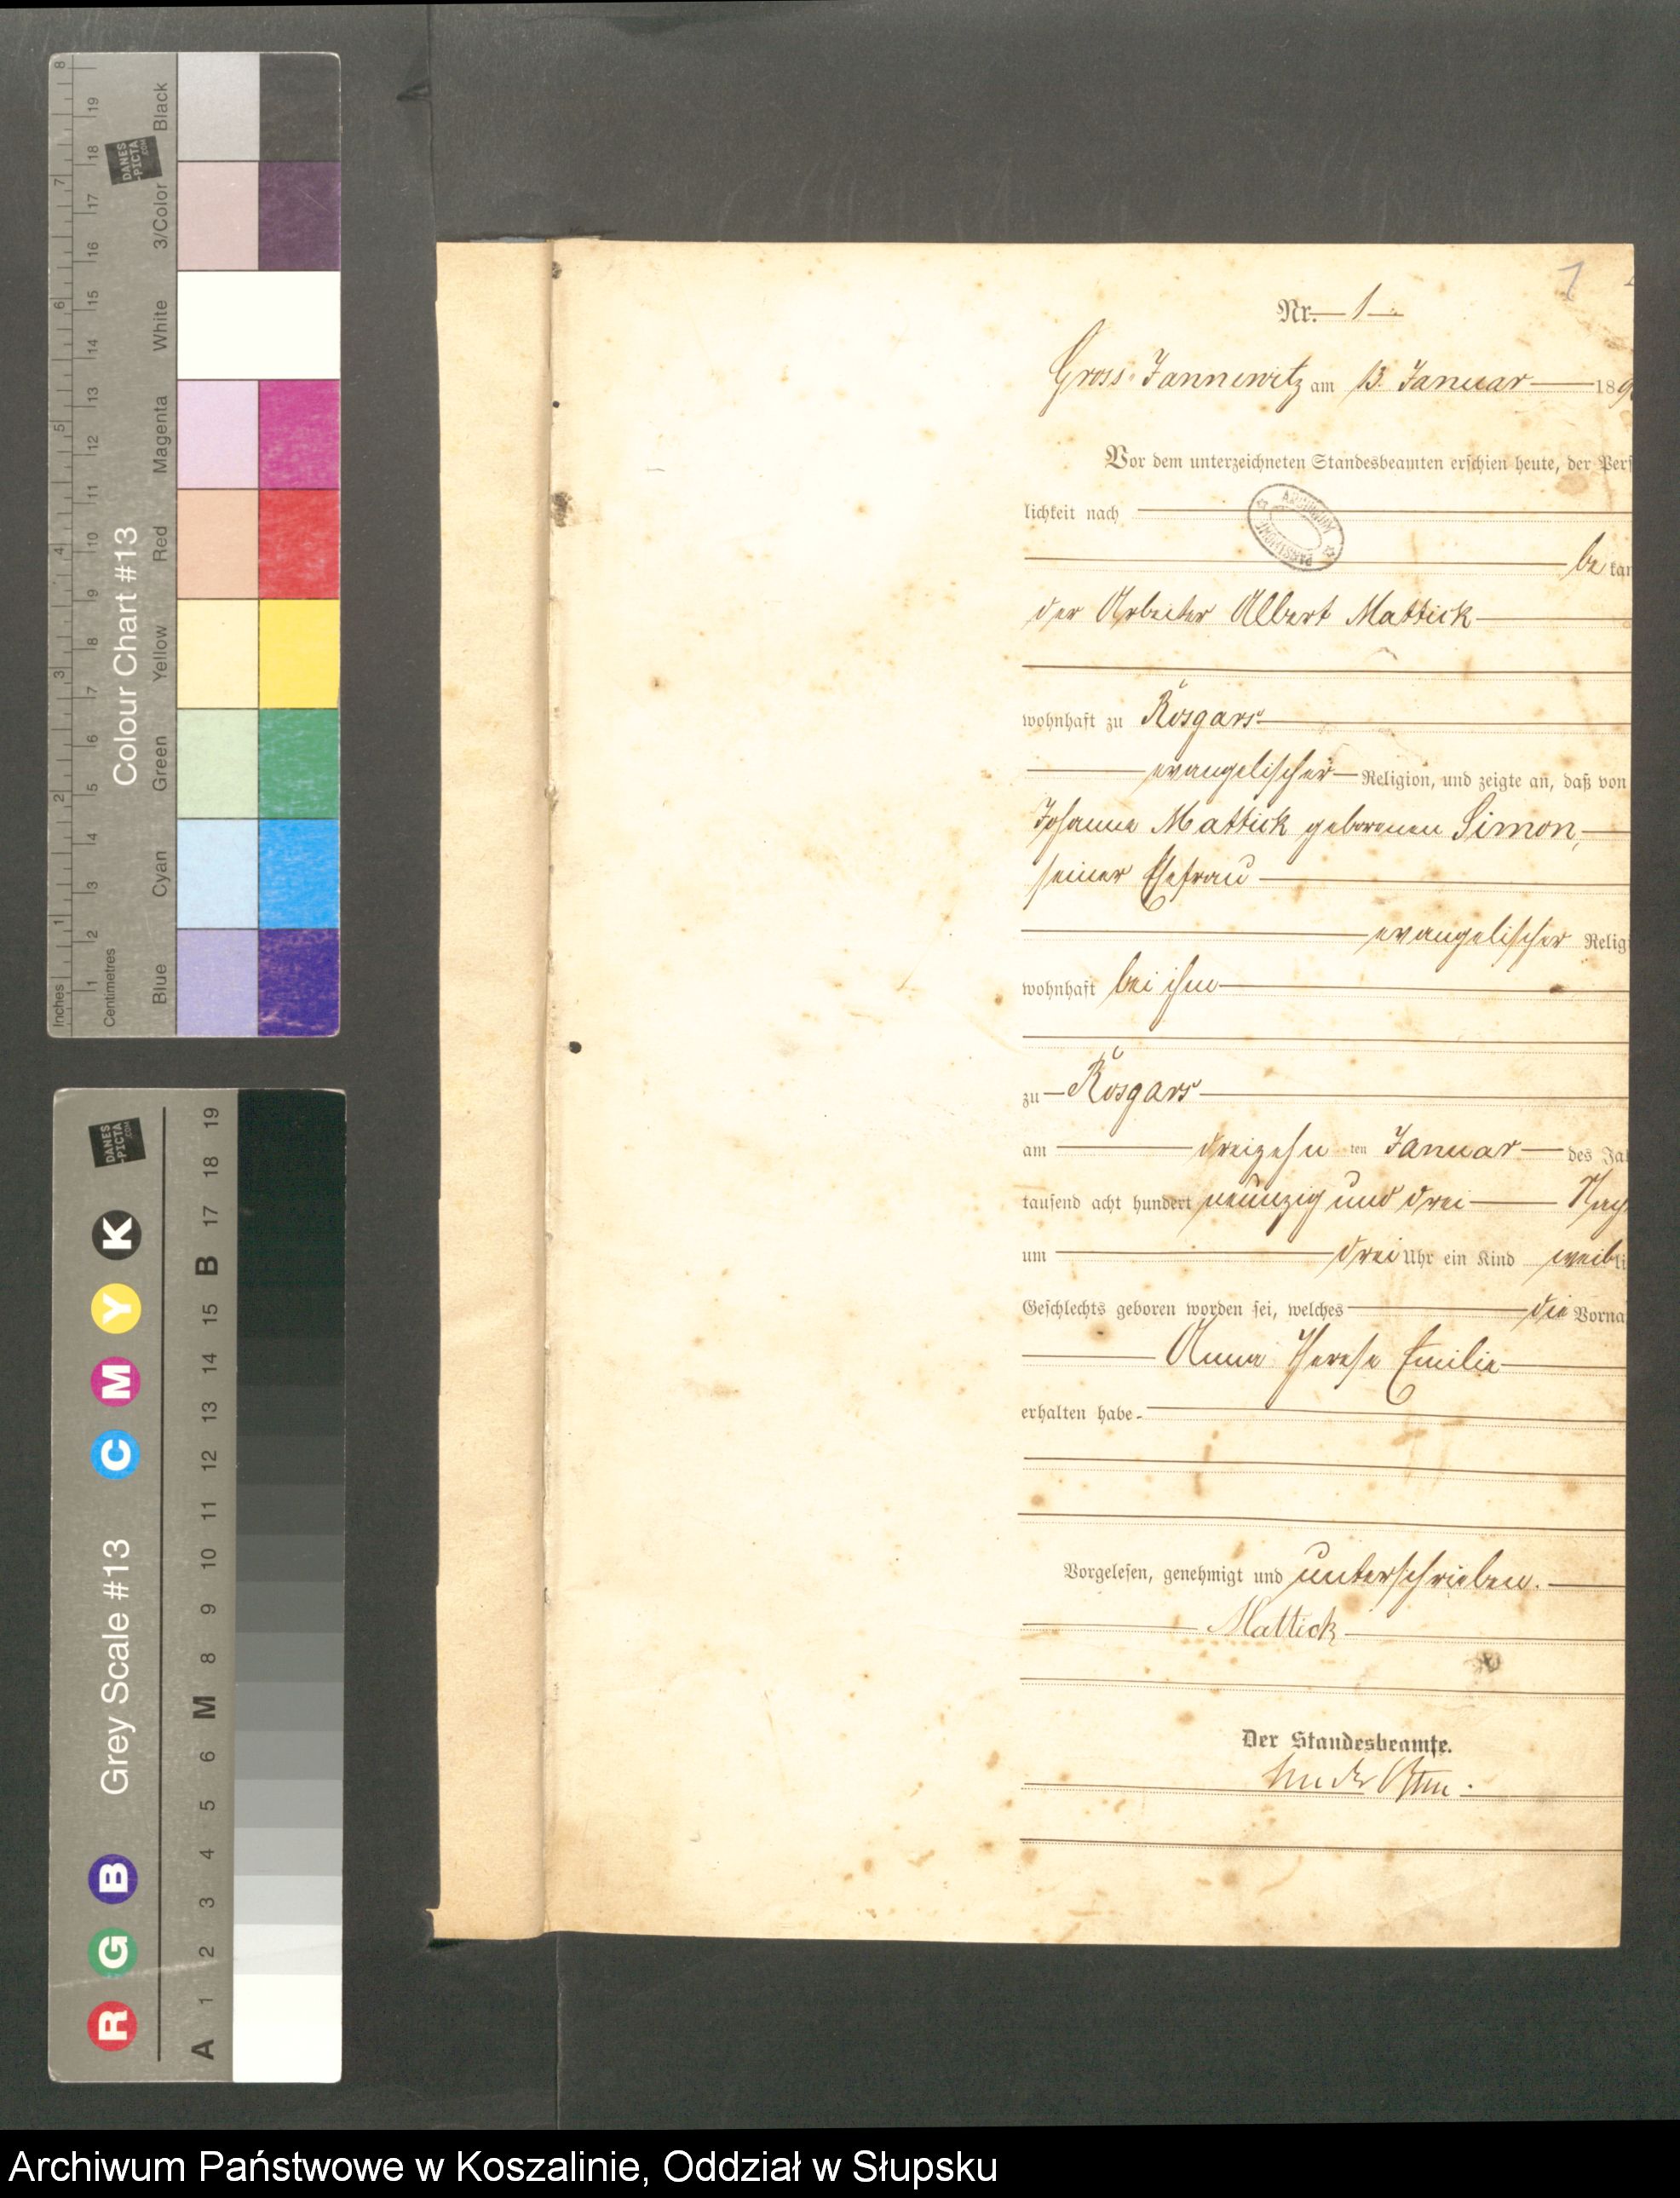 Inches
Centimetres
Colour Chart #13
Blue Cyan Green Yellow Red Magenta White 3/Color Black
1 2 3 4 5 6 7 8
1 2 3 4 5 6 7 8 9 10 11 12 13 14 15 16 17 18 19
DANES
-PICTA
.COM
DANES
-PICTA
.COM
R G B Grey Scale #13 C M Y K
A 1 2 3 4 5 6 M 8 9 10 11 12 13 14 15 B 17 18 19
1
Nr. 1
Gross-Jannewitz am 13. Januar 189
Vor dem unterzeichneten Standesbeamten erschien heute, der Pers
lichkeit nach
ARCHIWUM
PAŃSTWOWE
be kan
der Arbeiter Albert Mattick
wohnhaft zu Rosgars
evangelischer Religion, und zeigte an, daß von
Johanna Mattick geborenen Simon,
seiner Ehefrau
evangelischer Relig
wohnhaft bei ihm
zu Rosgars
am dreizehn ten Januar des Ja
tausend acht hundert neunzig und drei Nach
um drei Uhr ein Kind weibli
Geschlechts geboren worden sei, welches die Vorna
Anna Therese Emilie
erhalten habe
Vorgelesen, genehmigt und unterschrieben.
Mattick
Der Standesbeamte.
Archiwum Państwowe w Koszalinie, Oddział w Słupsku